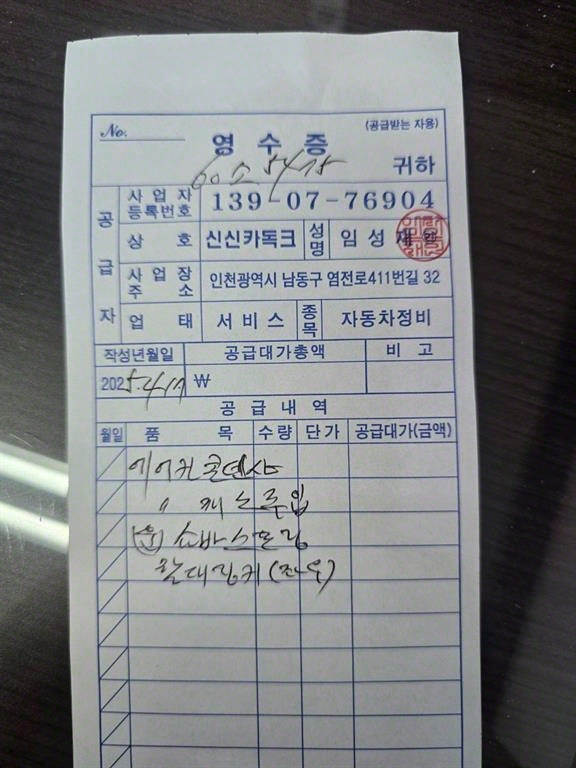 No.
(공급받는 자용)
영수증
60소5475 귀하
공급자
사업자등록번호 139-07-76904
상호 신신카독크 성명 임성재 인
사업장주소 인천광역시 남동구 염전로411번길 32
업태 서비스 종목 자동차정비
작성년월일 공급대가총액 비고
2025.4.17 ₩
공급내역
월일 품목 수량 단가 공급대가(금액)
에어컨콘덴샤
〃 까스주입
쇼바스프링
활대링키(좌우)